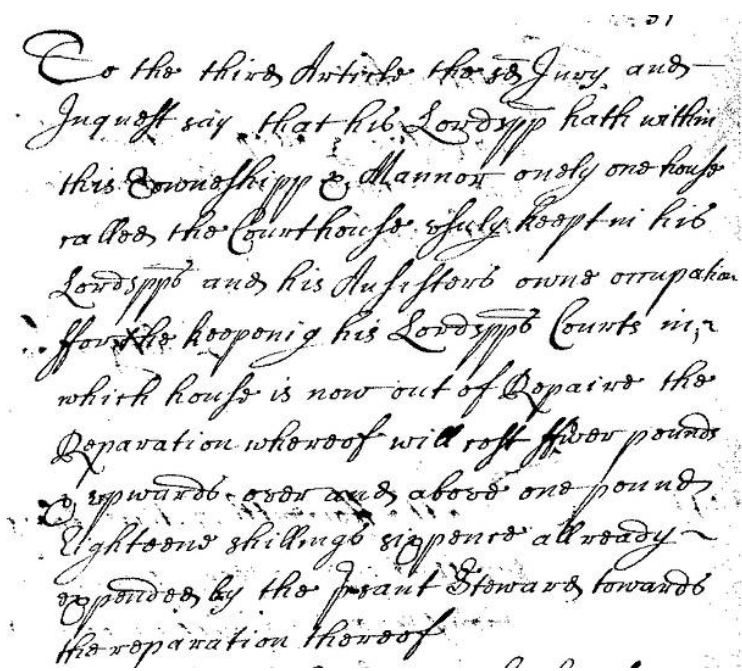 31
To the third Article the sd Jury and
Inquest say that his Lordspp hath within
this Towneshipp & Mannor onely one house
called the Courthouse usuly keept in his
Lordspps and his Ansisters owne occupation
ffor the keepenig his Lordspps Courts in,
which house is now out of Repaire the
Reparation whereof will cost ffiver pounds
& upwards over and above one pound
Eighteene shillings sixpence allready
expended by the psant Steward towards
the reparation thereof